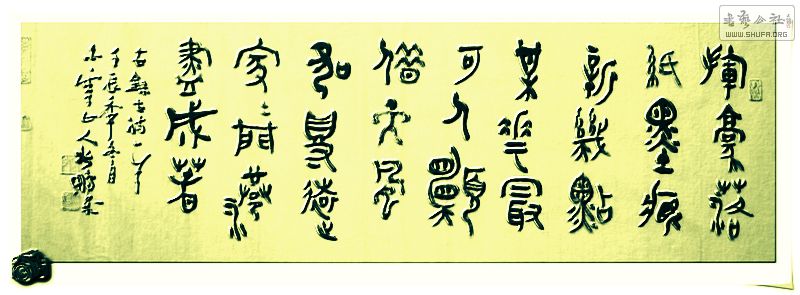 書藝公社
WWW.SHUFA.ORG
揮毫落
紙墨痕
新幾點
某花最
可人願
借天風
吹得遠
家〻門巷
盡成春
右錄古詩一首
壬辰年冬月